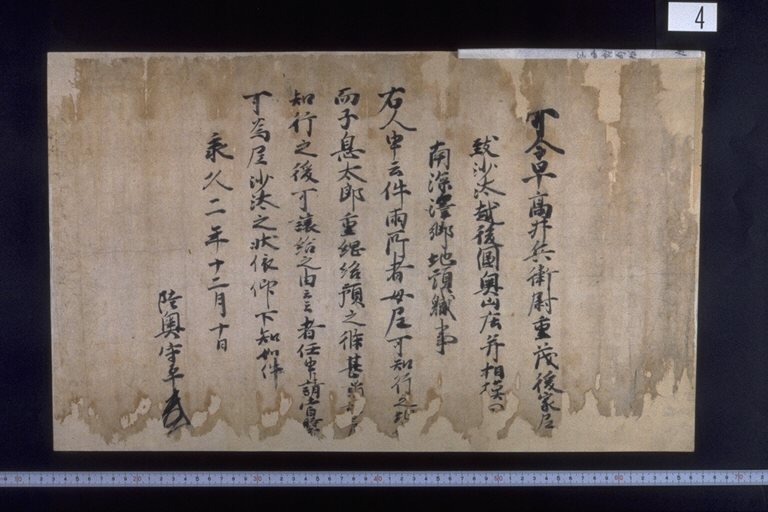 4
可令早高井兵衛尉重茂後家尼
致沙汰越後國奥山庄并相摸
南深澤郷地頭職事
右人申云件両所者母尼可知行之
而子息太郎重継給預之條甚
知行之後可譲給之由云々者任申請當時
可為尼沙汰之状依仰下知如件
承久二年十二月十日
陸奥守平